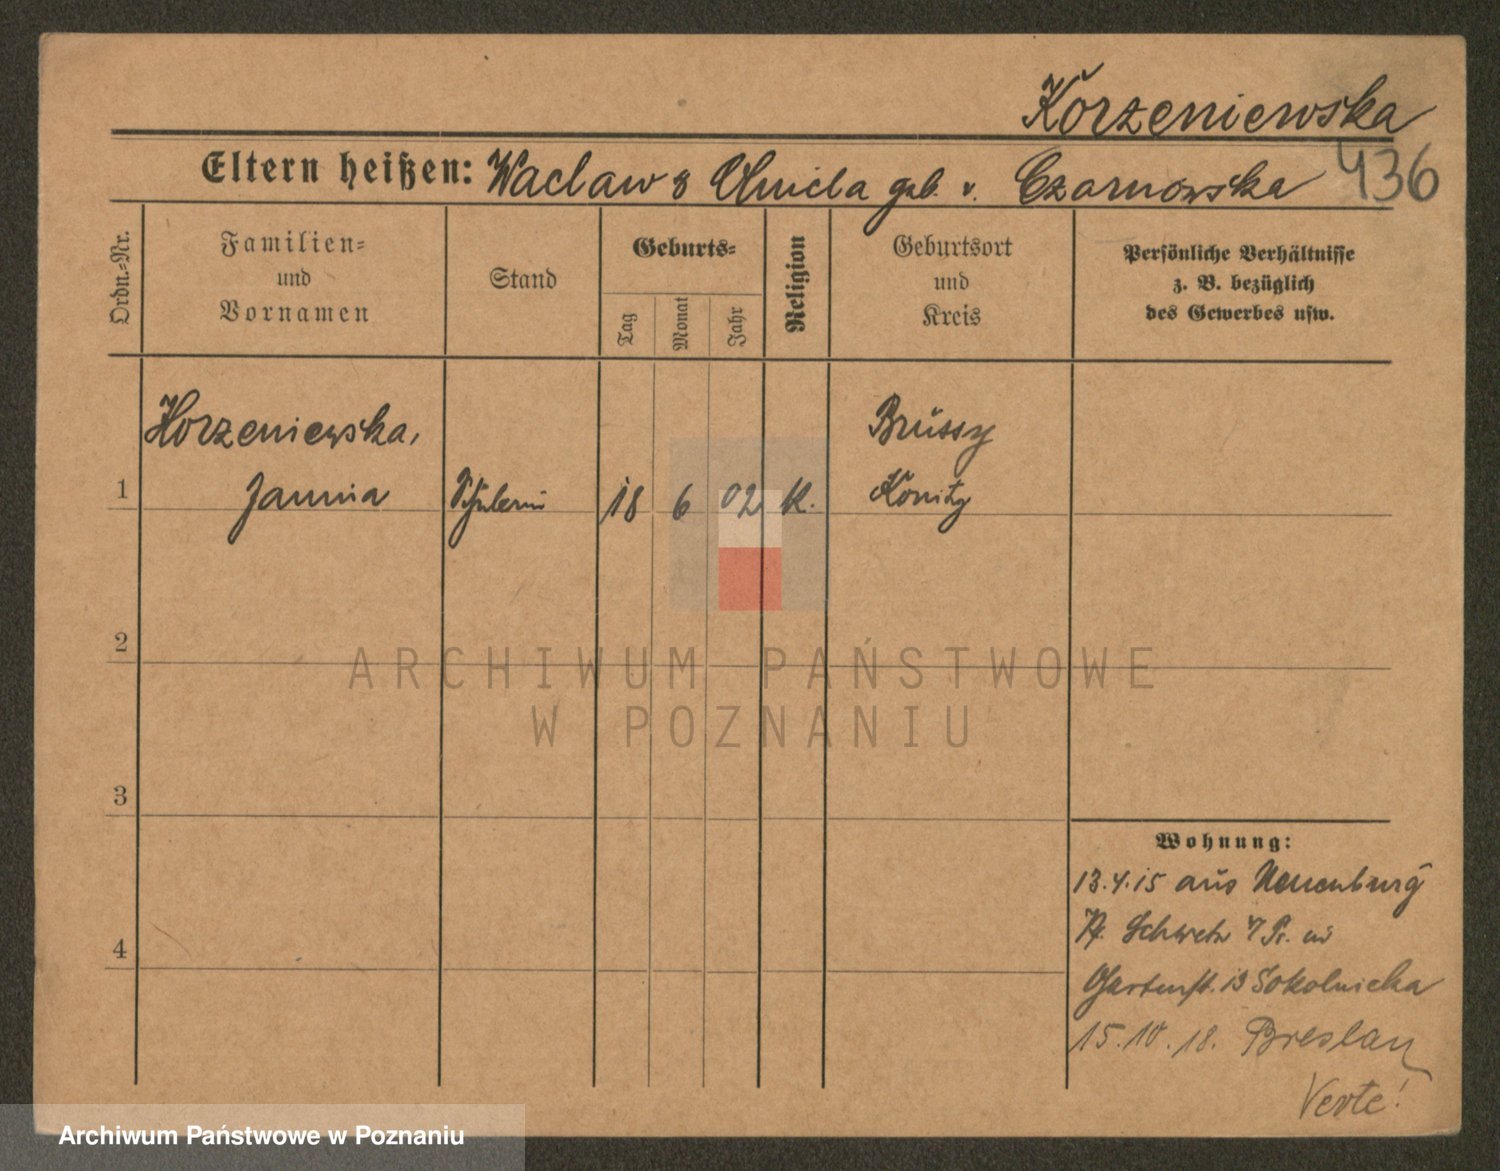 Korzeniewska
Eltern heißen: Waclaw & geb. v. Czarnowska 436
Ordn.-Nr.
Familien-
und
Vornamen
Stand
Geburts-
Tag
Monat
Jahr
Religion
Geburtsort
und
Kreis
Persönliche Verhältnisse
z. B. bezüglich
des Gewerbes usw.
Korzeniewska,
Brussy
1 Janina Schülerin 18 6 02 K. Konitz
2
ARCHIWUM PAŃSTWOWE
W POZNANIU
3
Wohnung:
13.4.15 aus Neuenburg
Schwetz
Gartenst. 13 Sokolnicka
4
15.10.18. Breslau
Verte!
Archiwum Państwowe w Poznaniu